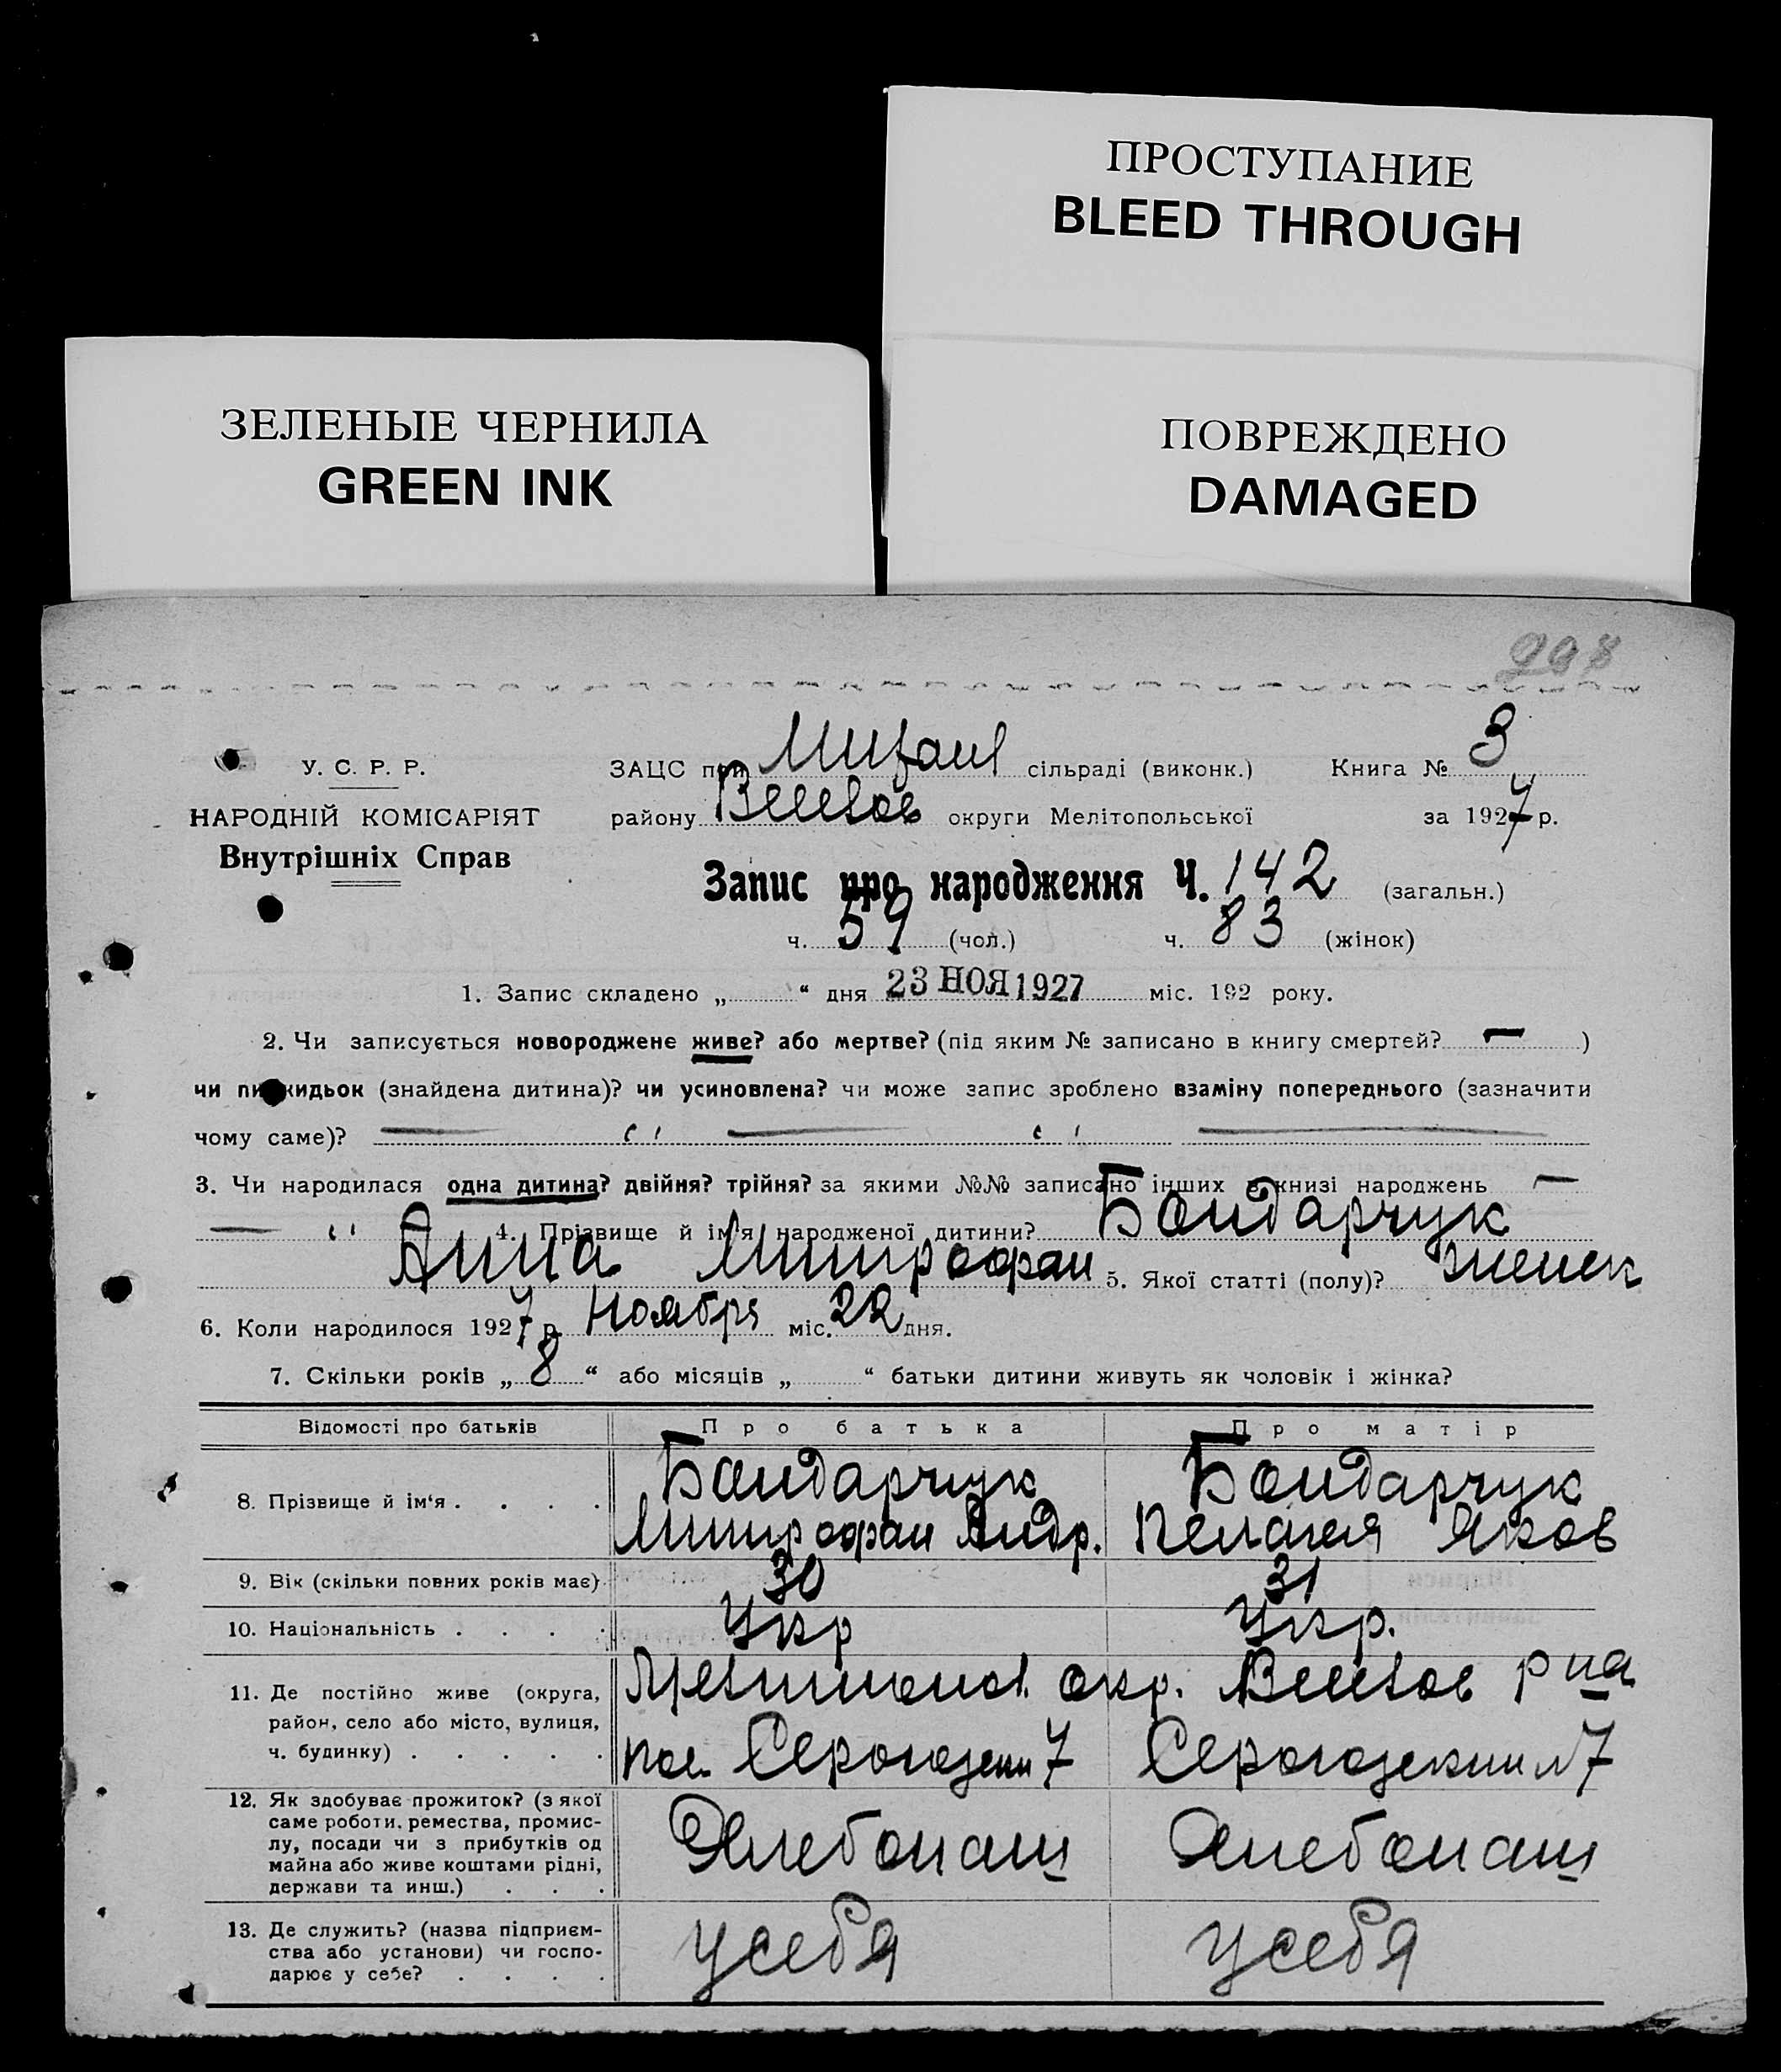 ПРОСТУПАНИЕ
BLEED THROUGH
ЗЕЛЕНЫЕ ЧЕРНИЛА
GREEN INK
ПОВРЕЖДЕНО
DAMAGED
298
У. С. Р. Р.
НАРОДНІЙ КОМІСАРІЯТ
Внутрішніх Справ
ЗАЦС при сільраді (виконк.) Книга № 3
району округи Мелітопольської за 1927 р.
Запис про народження Ч. 142 (загальн.)
ч. 59 (чол.) ч. 83 (жінок)
1. Запис складено „ “ дня 23 НОЯ 1927 міс. 192 року.
2. Чи записується новороджене живе? або мертве? (під яким № записано в книгу смертей? — )
чи підкидьок (знайдена дитина)? чи усиновлена? чи може запис зроблено взаміну попереднього (зазначити
чому саме)? — " — " —
3. Чи народилася одна дитина? двійня? трійня? за якими №№ записано інших в книзі народжень —
— " 4. Прізвище й ім'я народженої дитини? Бондарчук
Анна Митрофан 5. Якої статті (полу)? женск
6. Коли народилося 1927 р. Ноября міс. 22 дня.
7. Скільки років „ 8 “ або місяців „ “ батьки дитини живуть як чоловік і жінка?
Відомості про батьків Про батька Про матір
8. Прізвище й ім‘я . . . . Бондарчук Митрофан Андр. Бондарчук Пелагея Яков
9. Вік (скільки повних років має) 30 31
10. Національність . . . . Укр Укр.
11. Де постійно живе (округа,
район, село або місто, вулиця,
ч. будинку) . . . . .
окр. р на
7 7
12. Як здобуває прожиток? (з якої
саме роботи, ремества, промис-
лу, посади чи з прибутків од
майна або живе коштами рідні,
держави та инш.) . . .
Хлебопаш Хлебопаш
13. Де служить? (назва підприєм-
ства або установи) чи госпо-
дарює у себе? . . . .
у себя у себя